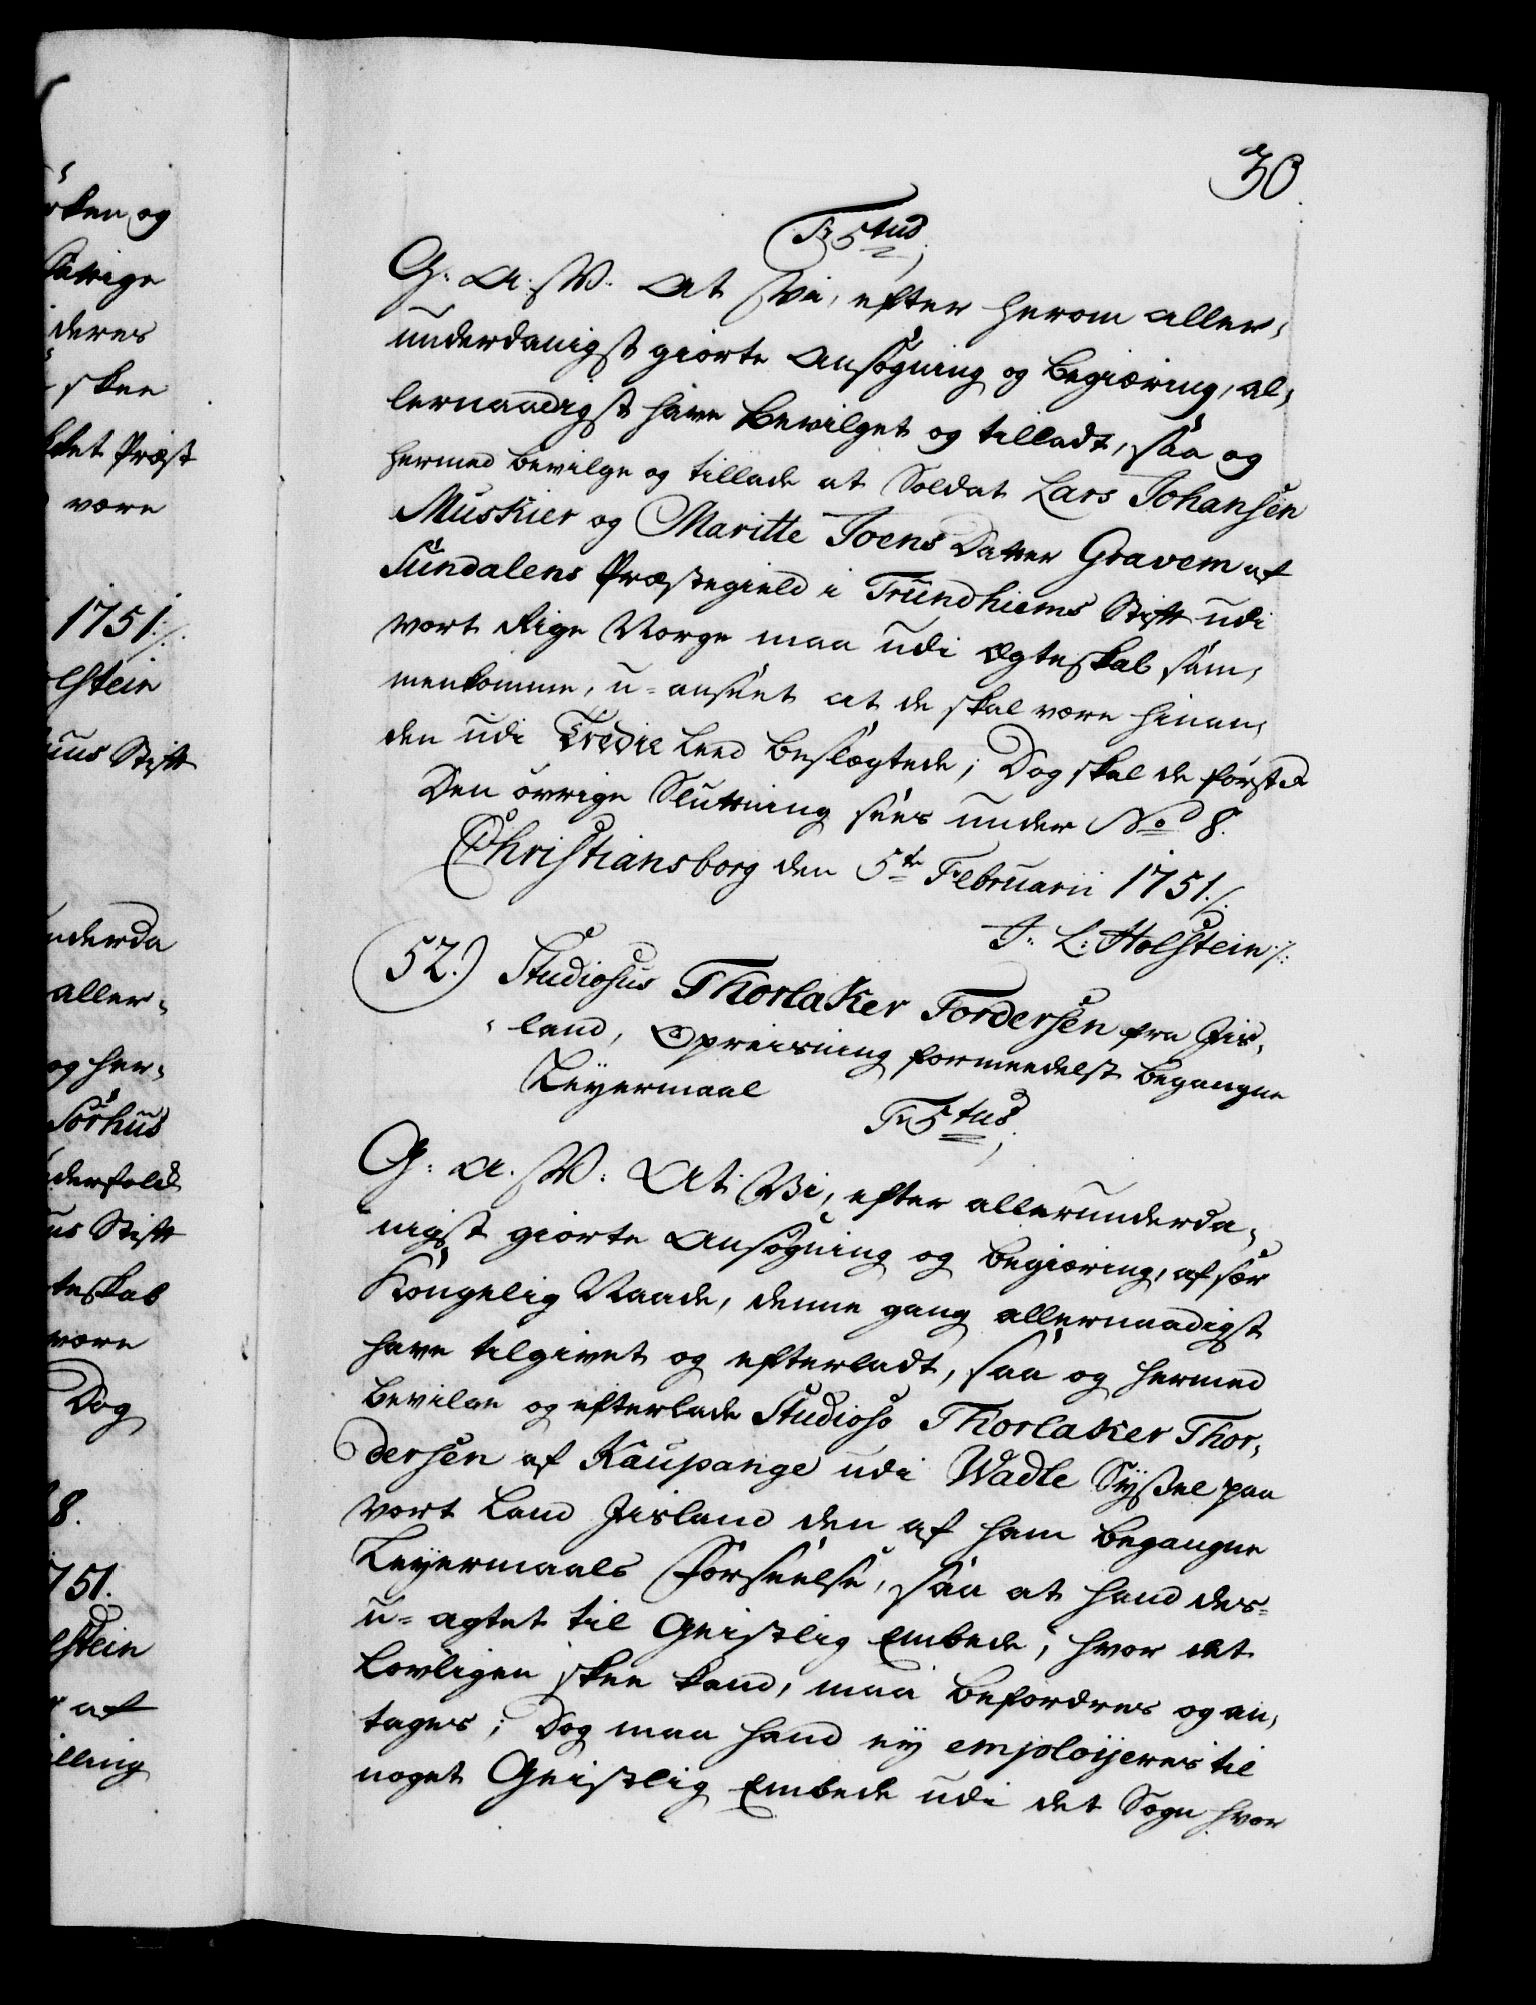 30.
Fr5tus
G: A: W. At Vi, efter herom aller-
underdanigst giorte Ansøgning og begiæring, al-
lernaadigst have bevilget og tilladt, saa og
hermed bevilge og tillade at Soldat Lars Johansen
Muskier og Maritte Joens Datter Gravem af
Sundalens Præstegield i Trundhiems Stift udi
vort Rige Norge maa udi Ægteskab sam-
menkomme, u-anseet at de skal være hinan-
den udi Tredie Leed beslægtede; Dog skal de først
Den øvrige Slutning sees under No 8.
Christiansborg den 5te Februarii 1751./.
J: L: Holstein/:
52.) Studiosus Thorlaker Tordersen fra Jis-
land, Opreisning formeedelst begangne
Leyermaal
Fr5tus
G: A. W: At Vi, efter allerunderda-
nigst giorte Ansøgning og begiæring, af sær
Kongelig Naade, denne gang allernaadigst
have tilgivet og efterladt, saa og hermed
bevilge og efterlade Studioso Thorlaker Thor-
dersen af Kaupange udi Wadle Syssel paa
vort Land Jisland den af ham begangne
Leyermaals Forseelse, saa at hand des-
u-agtet til Geistlig Embede, hvor det
lovligen skee kand, maa befordres og an-
tages; Dog maa hand ey emploijeres til
noget Geistlig Embede udi det Sogn hvor
rken og
deres
skee
ket Præst
være
1751:/.
lstein
uus Stift
nderda
aller-
og her-
Sörhus
us Stift
teskab
være
Dog
8.
751.
lstein
af
illing